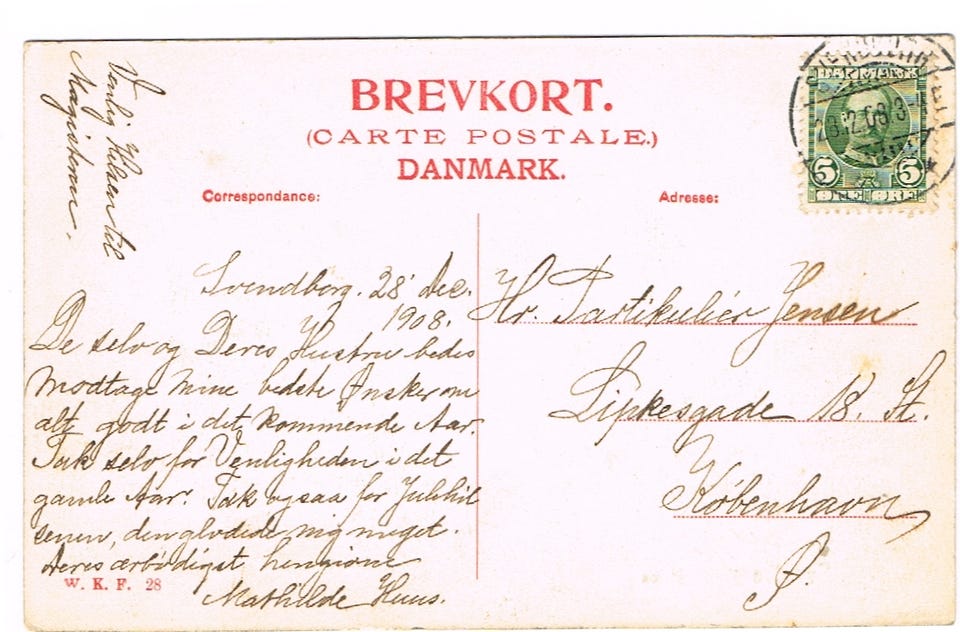 BREVKORT.
(CARTE POSTALE.)
DANMARK.
Correspondance:
Adresse:
Venlig Hilsen til
Magisteren.
Svendborg. 28' Dec.
1908.
De selv og Deres Hustru bedes
modtage mine bedste Ønsker om
alt godt i det kommende Aar.
Tak selv for Venligheden i det
gamle Aar. Tak ogsaa for Julehil
senen, den glædede mig meget.
Deres ærbødigst hengivne
Mathilde Huus.
W. K. F. 28
Hr. Partikulier Jensen
Lipkesgade 18. St.
København
Ø.
DANMARK
28.12.08 3-
5 5
ØRE ØRE